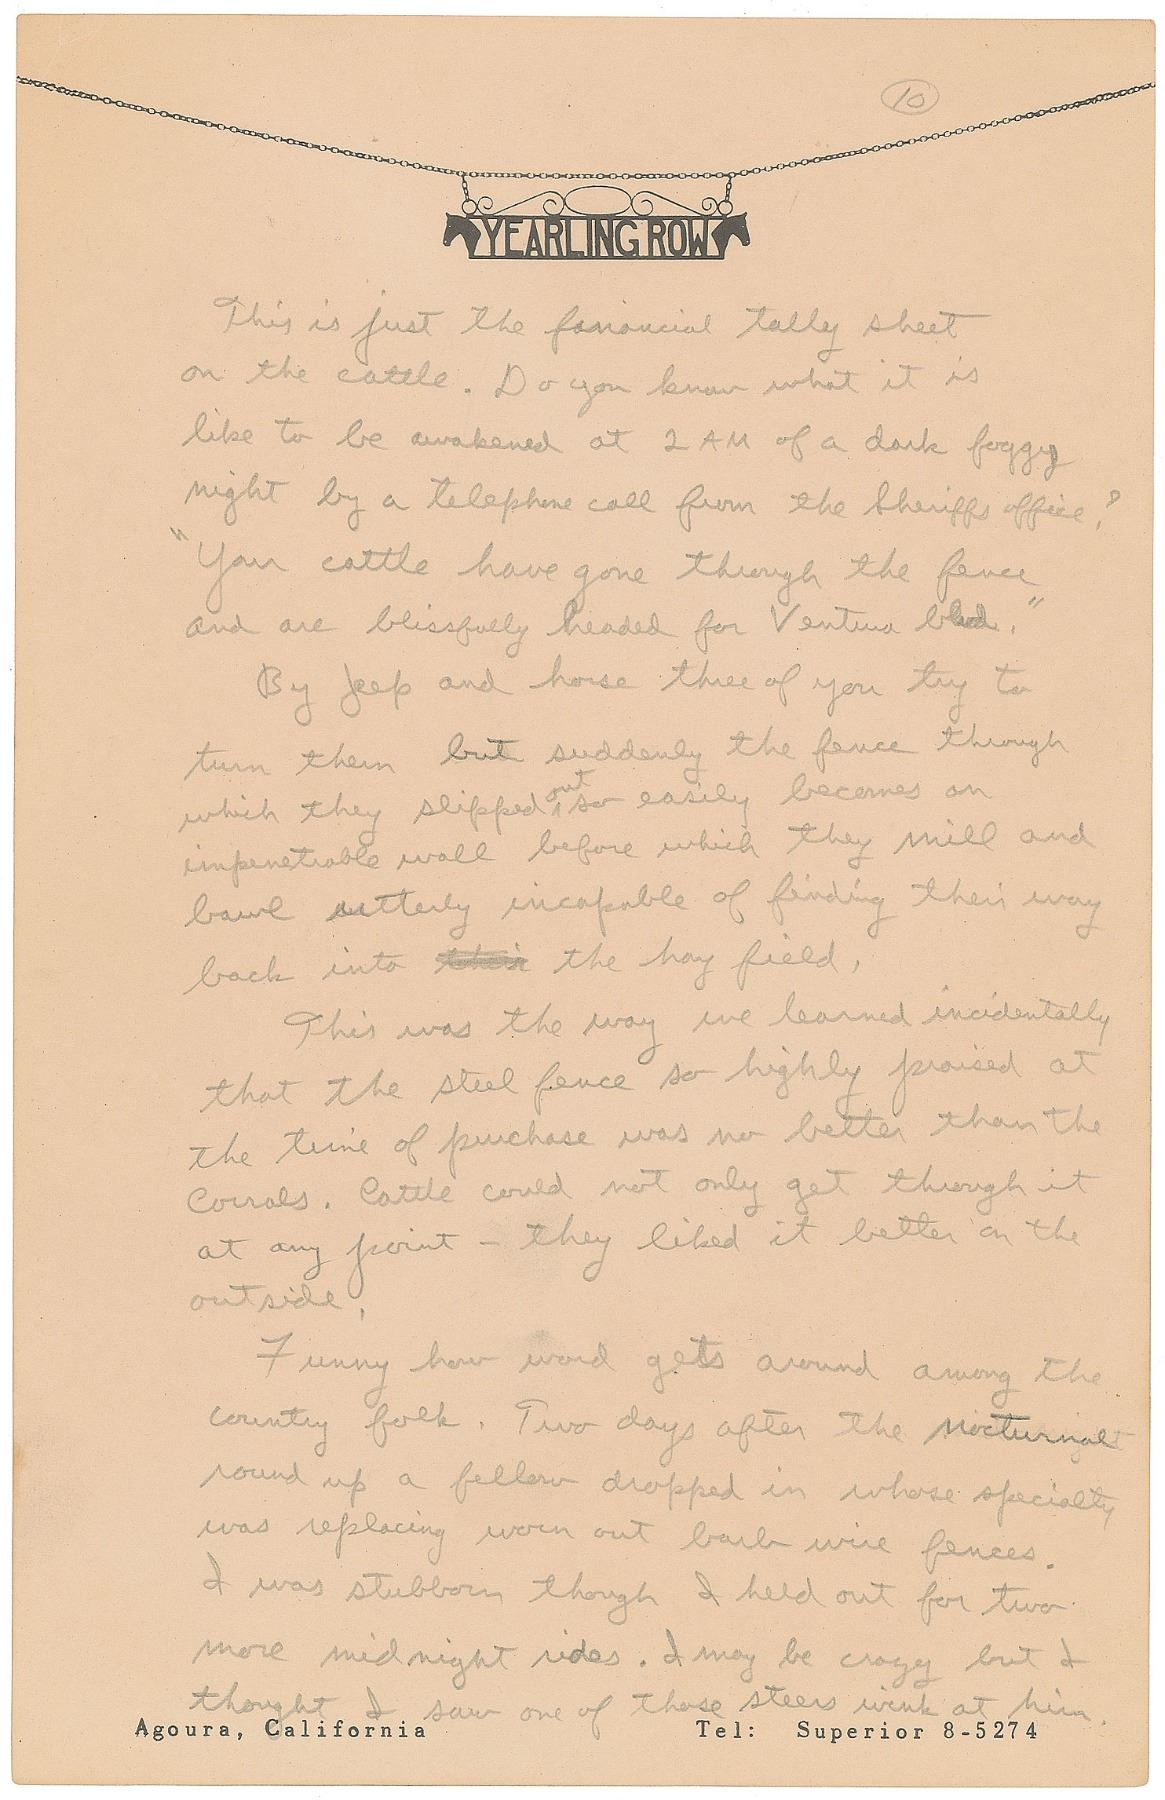 10
YEARLING ROW
This is just the finiancial tally sheet
on the cattle. Do you know what it is
like to be awakened at 2 AM of a dark foggy
night by a telephone call from the Sheriffs office?
"Your cattle have gone through the fence
and are blissfully headed for Ventura blvd."
By Jeep and horse three of you try to
turn them but suddenly the fence through
which they slipped out so easily becomes an
impenetrable wall before which they mill and
bawl utterly incapable of finding their way
back into their the hay field.
This was the way we learned incidentally
that the steel fence so highly praised at
the time of purchase was no better than the
Corrals. Cattle could not only get through it
at any point - they liked it better on the
outside.
Funny how word gets around among the
country folk. Two days after the nocturnal
round up a fellow dropped in whose specialty
was replacing worn out barb wire fences.
I was stubborn though I held out for two
more midnight rides. I may be crazy but I
thought I saw one of those steers wink at him.
Agoura, California Tel: Superior 8-5274